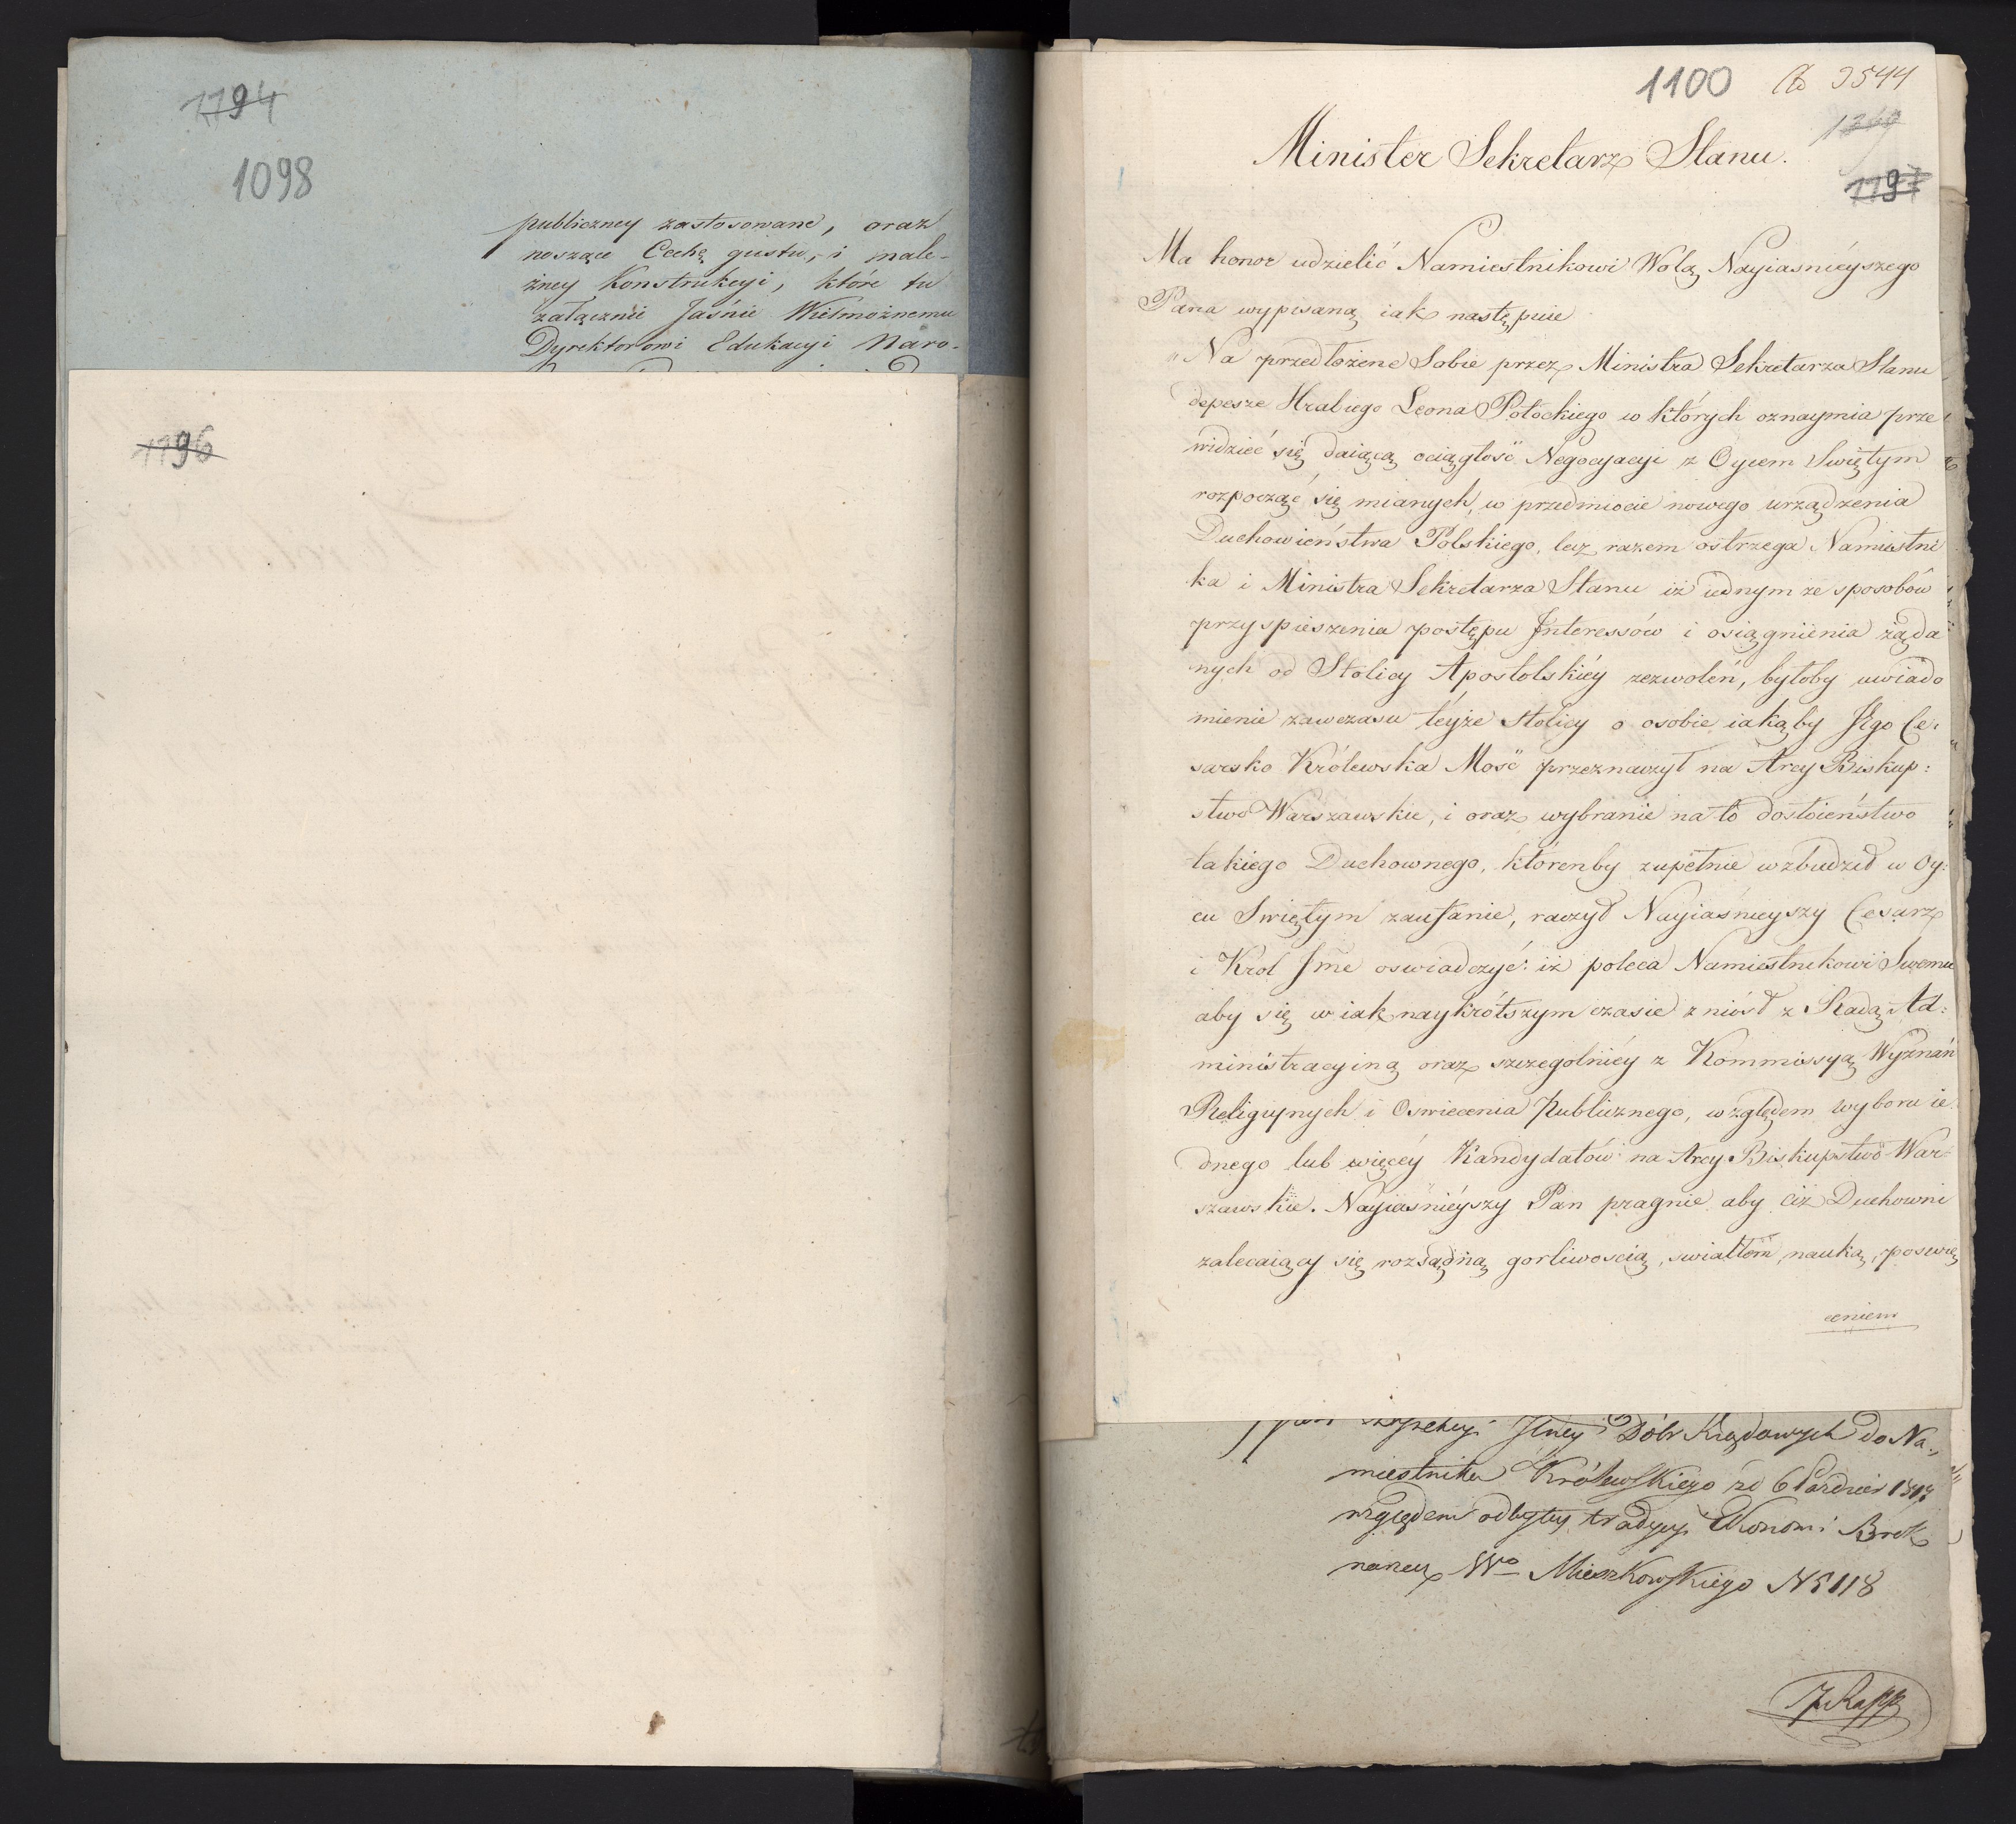 1194
1098
publiczney zastosowane, oraz
noszące Cechę gustu, i nale-
żney Konstrukcyi, które tu
załącznie Jaśnie Wielmożnemu
Dyrektorowi Edukacyi Naro-
1196
1100 9544
1197
Minister Sekretarz Stanu.
Ma honor udzielić Namiestnikowi Wolą Nayiasnieyszego
Pana wypisaną iak następuie
"Na przedłożene Sobie przez Ministra Sekretarza Stanu
depesze Hrabiego Leona Potockiego w których oznaymia prze
widzieć się daiącą ociągłość Negocyacyi z Oycem Swiętym
rozpocząć się mianych, w przedmiocie nowego urządzenia
Duchowieństwa Polskiego, lecz razem ostrzega Namiestni
ka i Ministra Sekretarza Stanu iż iednym ze sposobów
przyspieszenia postępu Interessów i osiągnienia żąda
nych od Stolicy Apostolskiéy zezwoleń, byłoby uwiado
mienie zawczasu teyże Stolicy o osobie iakąby Jego Ce:
sarsko Królewska Mość przeznaczył na Arcy Biskup:
stwo Warszawskie, i oraz wybranie na to dostoieństwo
takiego Duchownego, którenby zupełnie wzbudzał w Oy:
cu Swiętym zaufanie, raczył Nayiaśnieyszy Cesarz
i Król Jmć oswiadczyć: iż poleca Namiestnikowi Swemu
aby się w iak naykrótszym czasie zniósł z Radą Ad:
ministracyiną oraz szczególniéy z Kommissyą Wyznań
Religiynych i Oswiecenia Publicznego, względem wyboru ie
dnego lub więcéy Kandydatów na Arcy Biskupstwo War=
szawskie. Nayiaśniéyszy Pan pragnie aby ciż Duchowni
zalecaiący się rozsądną gorliwoscią, swiatłem, nauką, poswię
ceniem
Dóbr Rządowych do Na=
miestnika Królewskiego zd 6 Paździer 1817
względem odbytey tradycyi Ekonomi Brok
na rzecz Wo Mieszkowskiego N 5118